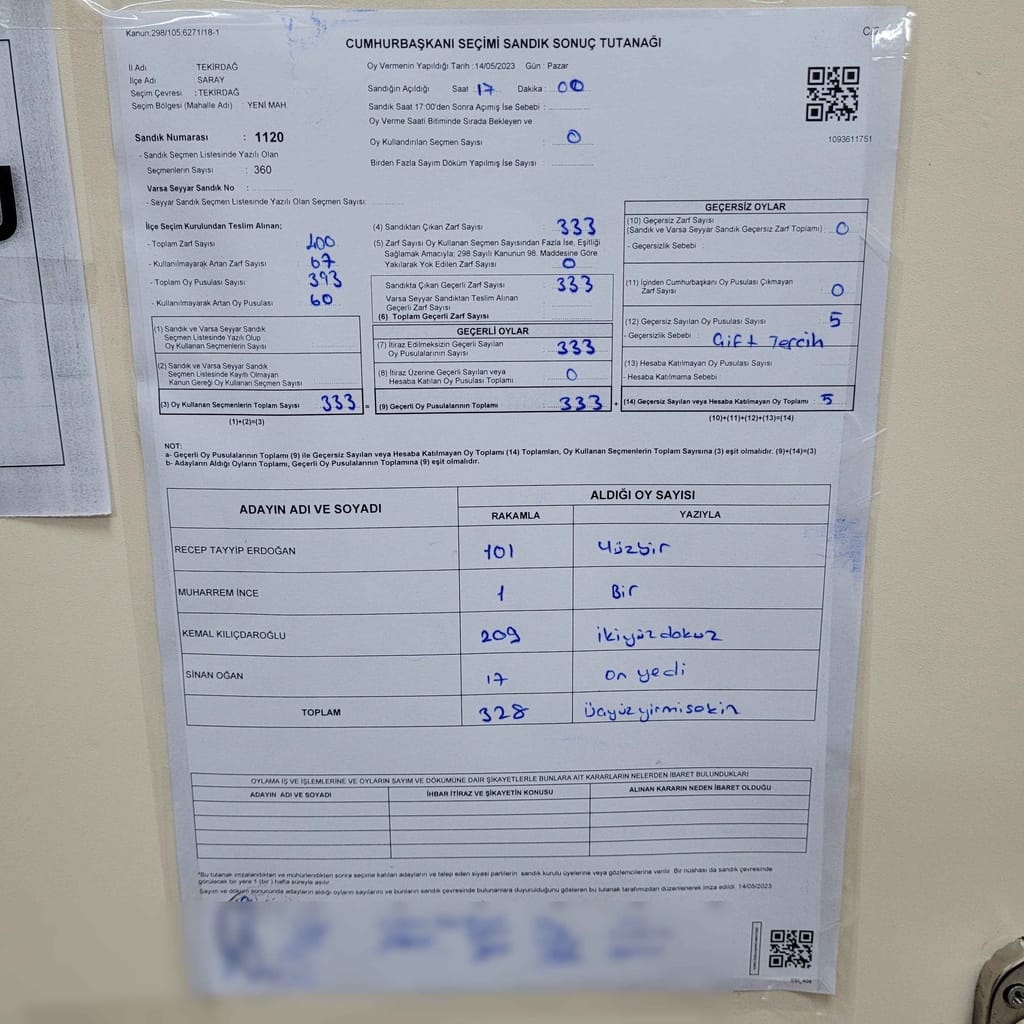 Kanun.298/105,6271/18-1
CUMHURBAŞKANI SEÇİMİ SANDIK SONUÇ TUTANAĞI
İl Adı : TEKİRDAĞ
İlçe Adı : SARAY
Seçim Çevresi : TEKİRDAĞ
Seçim Bölgesi (Mahalle Adı) : YENİ MAH.
Sandık Numarası : 1120
- Sandık Seçmen Listesinde Yazılı Olan
Seçmenlerin Sayısı : 360
Varsa Seyyar Sandık No :
- Seyyar Sandık Seçmen Listesinde Yazılı Olan Seçmen Sayısı:
Oy Vermenin Yapıldığı Tarih :14/05/2023 Gün : Pazar
Sandığın Açıldığı Saat : 17 Dakika : 00
Sandık Saat 17:00'den Sonra Açmış İse Sebebi :
Oy Verme Saati Bitiminde Sırada Bekleyen ve
Oy Kullandırılan Seçmen Sayısı : 0
Birden Fazla Sayım Döküm Yapılmış İse Sayısı :
1093611751
İlçe Seçim Kurulundan Teslim Alınan;
- Toplam Zarf Sayısı 400
- Kullanılmayarak Artan Zarf Sayısı 67
- Toplam Oy Pusulası Sayısı 393
- Kullanılmayarak Artan Oy Pusulası 60
(1) Sandık ve Varsa Seyyar Sandık
Seçmen Listesinde Yazılı Olup
Oy Kullanan Seçmenlerin Sayısı
(2) Sandık ve Varsa Seyyar Sandık
Seçmen Listesinde Kayıtlı Olmayan
Kanun Gereği Oy Kullanan Seçmen Sayısı
(3) Oy Kullanan Seçmenlerin Toplam Sayısı 333 =
(1)+(2)=(3)
(4) Sandıktan Çıkan Zarf Sayısı 333
(5) Zarf Sayısı Oy Kullanan Seçmen Sayısından Fazla İse, Eşitliği
Sağlamak Amacıyla; 298 Sayılı Kanunun 98. Maddesine Göre
Yakılarak Yok Edilen Zarf Sayısı 0
Sandıkta Çıkan Geçerli Zarf Sayısı 333
Varsa Seyyar Sandıktan Teslim Alınan
Geçerli Zarf Sayısı
(6) Toplam Geçerli Zarf Sayısı
GEÇERLİ OYLAR
(7) İtiraz Edilmeksizin Geçerli Sayılan
Oy Pusulalarının Sayısı 333
(8) İtiraz Üzerine Geçerli Sayılan veya
Hesaba Katılan Oy Pusulası Toplamı 0
(9) Geçerli Oy Pusulalarının Toplamı 333 +
GEÇERSİZ OYLAR
(10) Geçersiz Zarf Sayısı
(Sandık ve Varsa Seyyar Sandık Geçersiz Zarf Toplamı) 0
- Geçersizlik Sebebi :
(11) İçinden Cumhurbaşkanı Oy Pusulası Çıkmayan
Zarf Sayısı 0
(12) Geçersiz Sayılan Oy Pusulası Sayısı 5
- Geçersizlik Sebebi : Çift Tercih
(13) Hesaba Katılmayan Oy Pusulası Sayısı
- Hesaba Katılmama Sebebi
(14) Geçersiz Sayılan veya Hesaba Katılmayan Oy Toplamı : 5
(10)+(11)+(12)+(13)=(14)
NOT:
a- Geçerli Oy Pusulalarının Toplamı (9) ile Geçersiz Sayılan veya Hesaba Katılmayan Oy Toplamı (14) Toplamları, Oy Kullanan Seçmenlerin Toplam Sayısına (3) eşit olmalıdır. (9)+(14)=(3)
b- Adayların Aldığı Oyların Toplamı, Geçerli Oy Pusulalarının Toplamına (9) eşit olmalıdır.
ADAYIN ADI VE SOYADI ALDIĞI OY SAYISI
RAKAMLA YAZIYLA
RECEP TAYYİP ERDOĞAN 101 Yüzbir
MUHARREM İNCE 1 Bir
KEMAL KILIÇDAROĞLU 209 ikiyüzdokuz
SİNAN OĞAN 17 on yedi
TOPLAM 328 üçyüzyirmisekiz
OYLAMA İŞ VE İŞLEMLERİNE VE OYLARIN SAYIM VE DÖKÜMÜNE DAİR ŞİKAYETLERLE BUNLARA AİT KARARLARIN NELERDEN İBARET BULUNDUKLARI
ADAYIN ADI VE SOYADI İHBAR İTİRAZ VE ŞİKAYETİN KONUSU ALINAN KARARIN NEDEN İBARET OLDUĞU
*Bu tutanak imzalandıktan ve mühürlendikten sonra seçime katılan adayların ve talep eden siyasi partilerin sandık kurulu üyelerine veya gözlemcilerine verilir. Bir nüshası da sandık çevresinde
görülecek bir yere 1 (bir) hafta süreyle asılır.
Sayım ve döküm sonucunda adayların aldığı oyların sayılarını ve bunların sandık çevresinde bulunanlara duyurulduğunu gösteren bu tutanak tarafımızdan düzenlenerek imza edildi. 14/05/2023